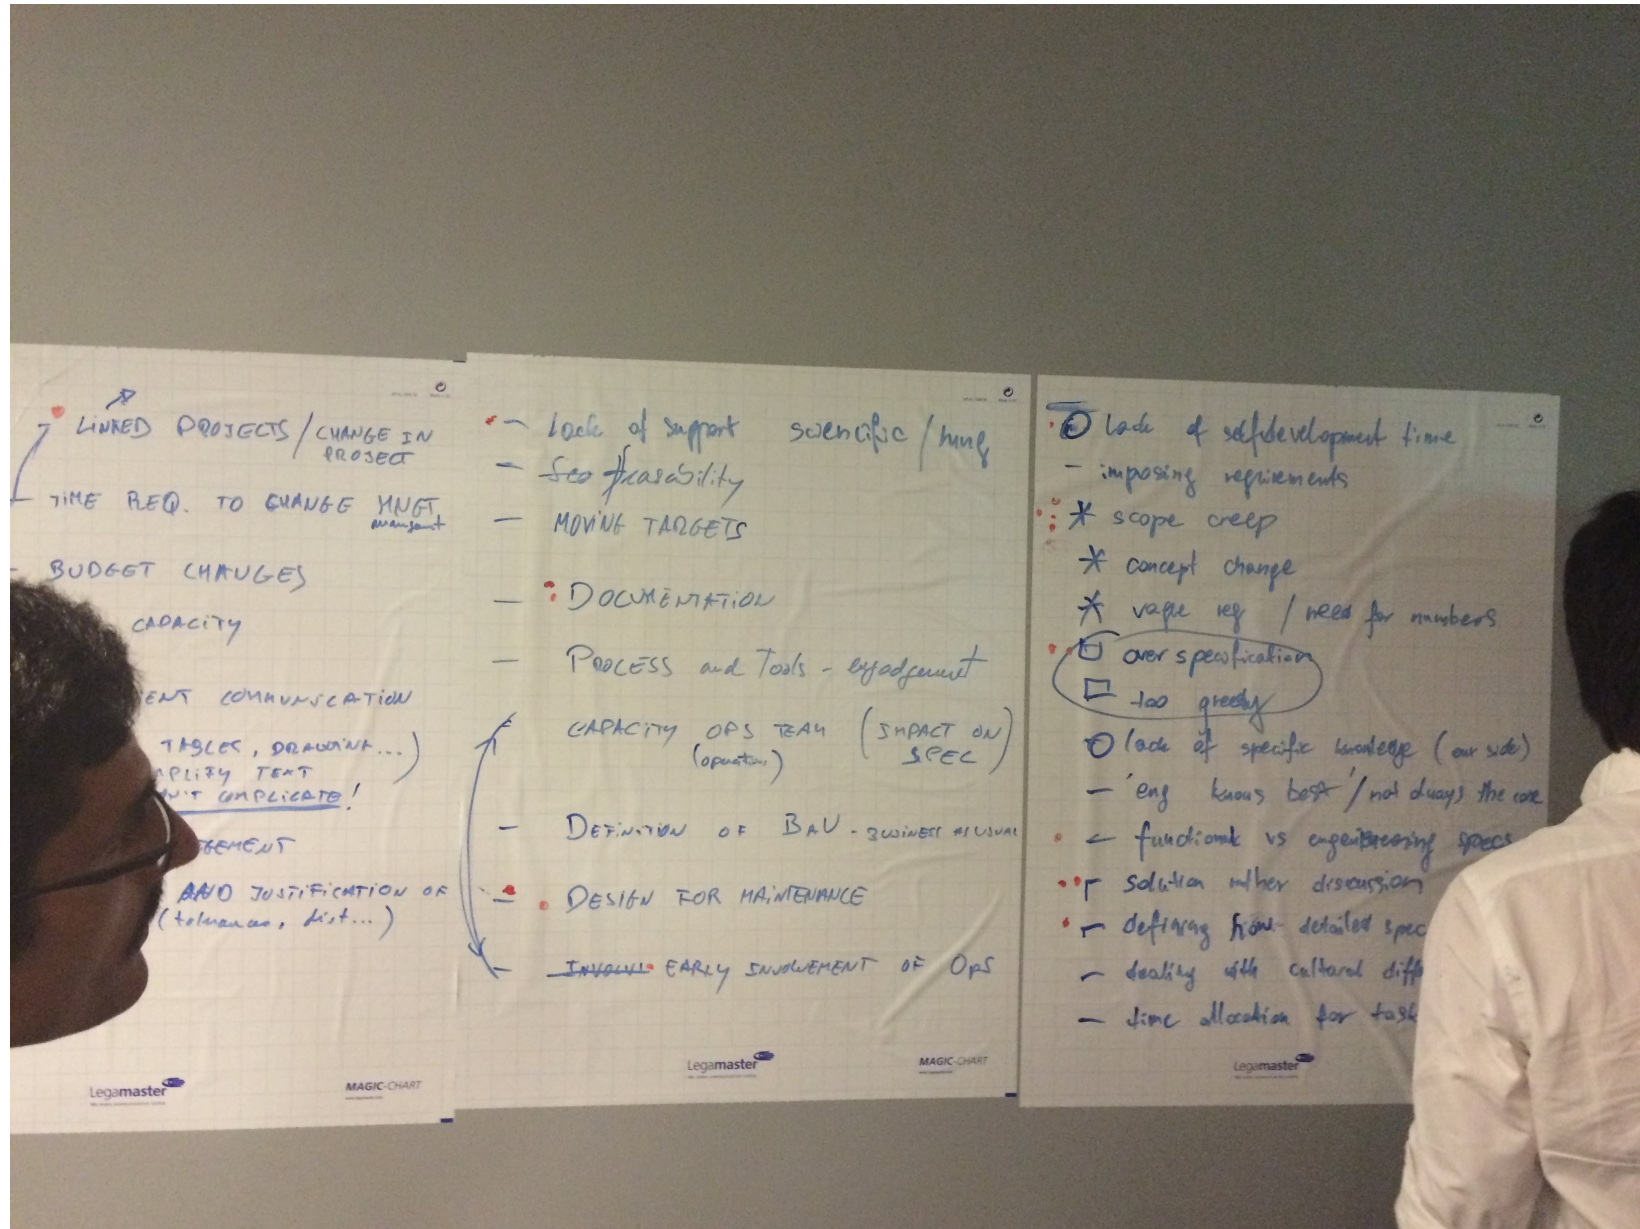 LINKED PROJECTS / CHANGE IN
PROJECT
TIME REQ. TO CHANGE MNGT
BUDGET CHANGES
CAPACITY
ENT COMMUNICATION
TABLES, DRAWING...)
PLIFY TEXT
N'T COMPLICATE!
GEMENT
AND JUSTIFICATION OF
(tolerances, list...)
Legamaster
MAGIC-CHART
- Lack of support scientific /
- feasability
- MOVING TARGETS
- DOCUMENTATION
- PROCESS and Tools - engadgement
CAPACITY OPS TEAM (IMPACT ON
SPEC)
- DEFINITION OF BAU - BUSINESS AS USUAL
- DESIGN FOR MAINTENANCE
- INVOLVE EARLY INVOLVEMENT OF OPS
Legamaster
MAGIC-CHART
lack of selfdevelopment time
- imposing requirements
* scope creep
* concept change
* vague req / need for numbers
over specification
too greedy
lack of specific knowledge (our side)
- 'eng knows best' / not always the case
- functional vs engineering specs
- solution rather discussion
- defining how - detailed spec
- dealing with cultural diff
- time allocation for task
Legamaster